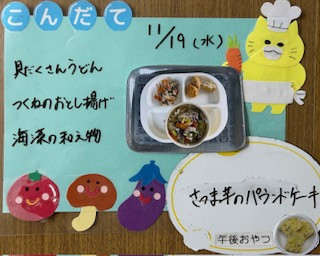 こんだて
11/19(水)
具だくさんうどん
つくねのおとし揚げ
海藻の和え物
さつま芋のパウンドケーキ
午後おやつ